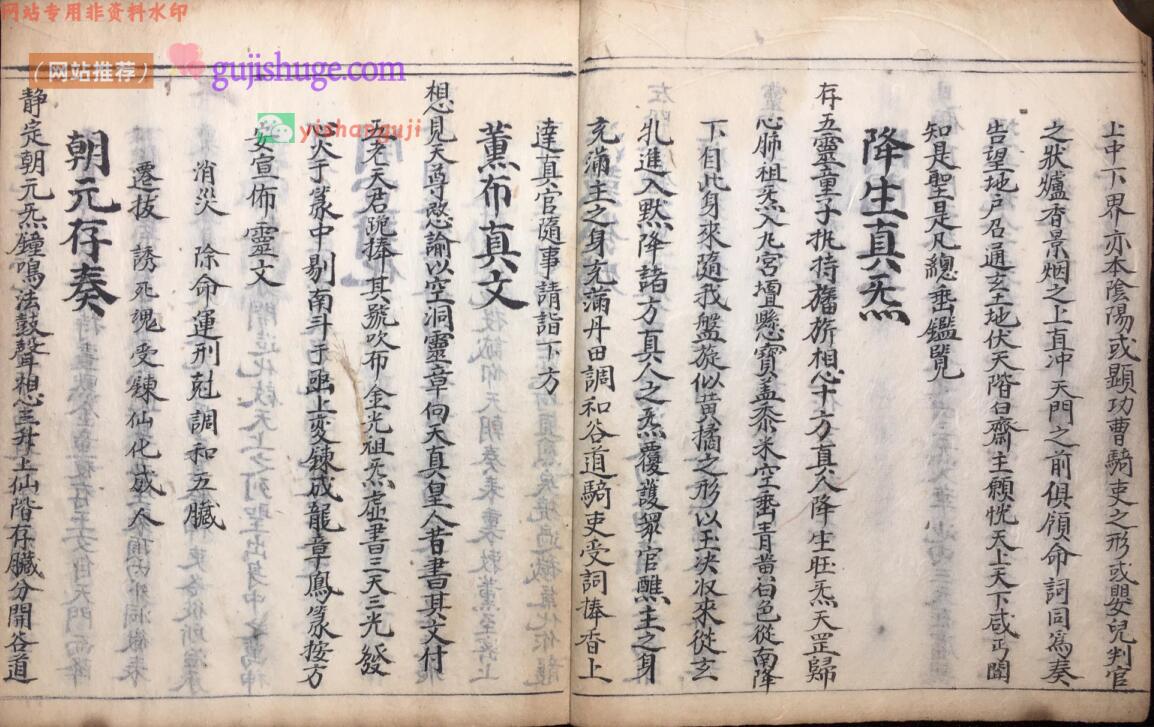 网站专用非资料水印
（网站推荐）
gujishuge.com
yishanguji
上中下界亦本陰陽或顯功曹騎吏之形或嬰兒判官
之狀爐香景烟之上直冲天門之前俱領命詞同爲奏
告望地戶召通玄土地伏天階白齋主願恍天上天下咸丐
知是聖是凡總垂鑑覽
降生真炁
存五靈五童子执持旛旂相心十方真人降生旺炁天罡歸
心肺祖炁入九宮壇懸心寶盖黍米空垂青黄白色從南降
下自此身來隨我盤旋似黄橘之形以玉决収來從玄
牝進入默降諸方真人之炁覆護衆官醮主之身
充滿主之身充滿丹田調和谷道騎吏受詞捧香上
達真官隨事請詣下方
薫布真文
想見天尊慜諭以空洞靈章向天真皇人昔書其文付
五老天君跪捧其號吹布金光祖炁虛書三天三光發
心火于篆中剔南斗于亟上变鍊成龍章鳳篆按方
安宣佈靈文
消災 除命運刑尅調和五臟
遷拔 誘死魂受鍊仙化成人
朝元存奏
静定朝元炁鐘鳴法鼓聲相心三升上仙階存臟分開谷道